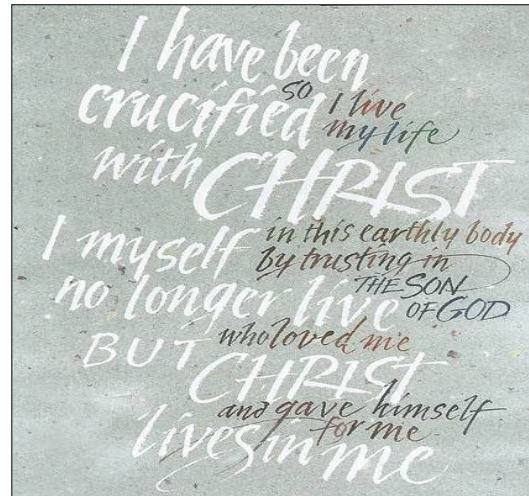 I have been
crucified
with CHRIST
I myself
no longer live
BUT
CHRIST
lives in me
so I live
my life
in this earthly body
by trusting in
THE SON
OF GOD
who loved me
and gave himself
for me